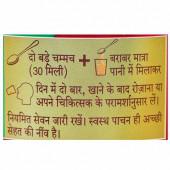 दो बड़े चम्मच + बराबर मात्रा
(30 मिली) पानी में मिलाकर
दिन में दो बार, खाने के बाद रोज़ाना या
अपने चिकित्सक के परामर्शानुसार लें।
नियमित सेवन जारी रखें। स्वस्थ पाचन ही अच्छी
सेहत की नींव है।